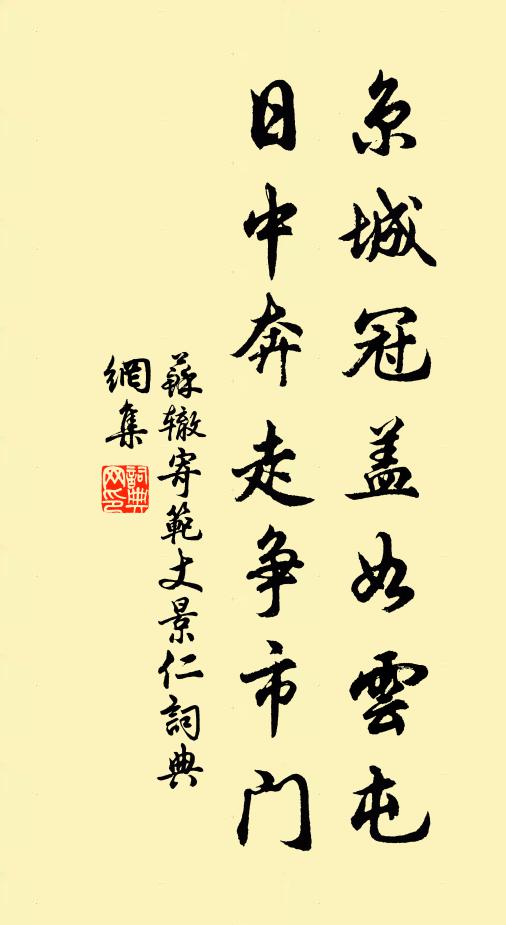 京城冠盖如雲屯
日中奔走争市门
蘇辙寄範丈景仁詞典
網集
詞典網印